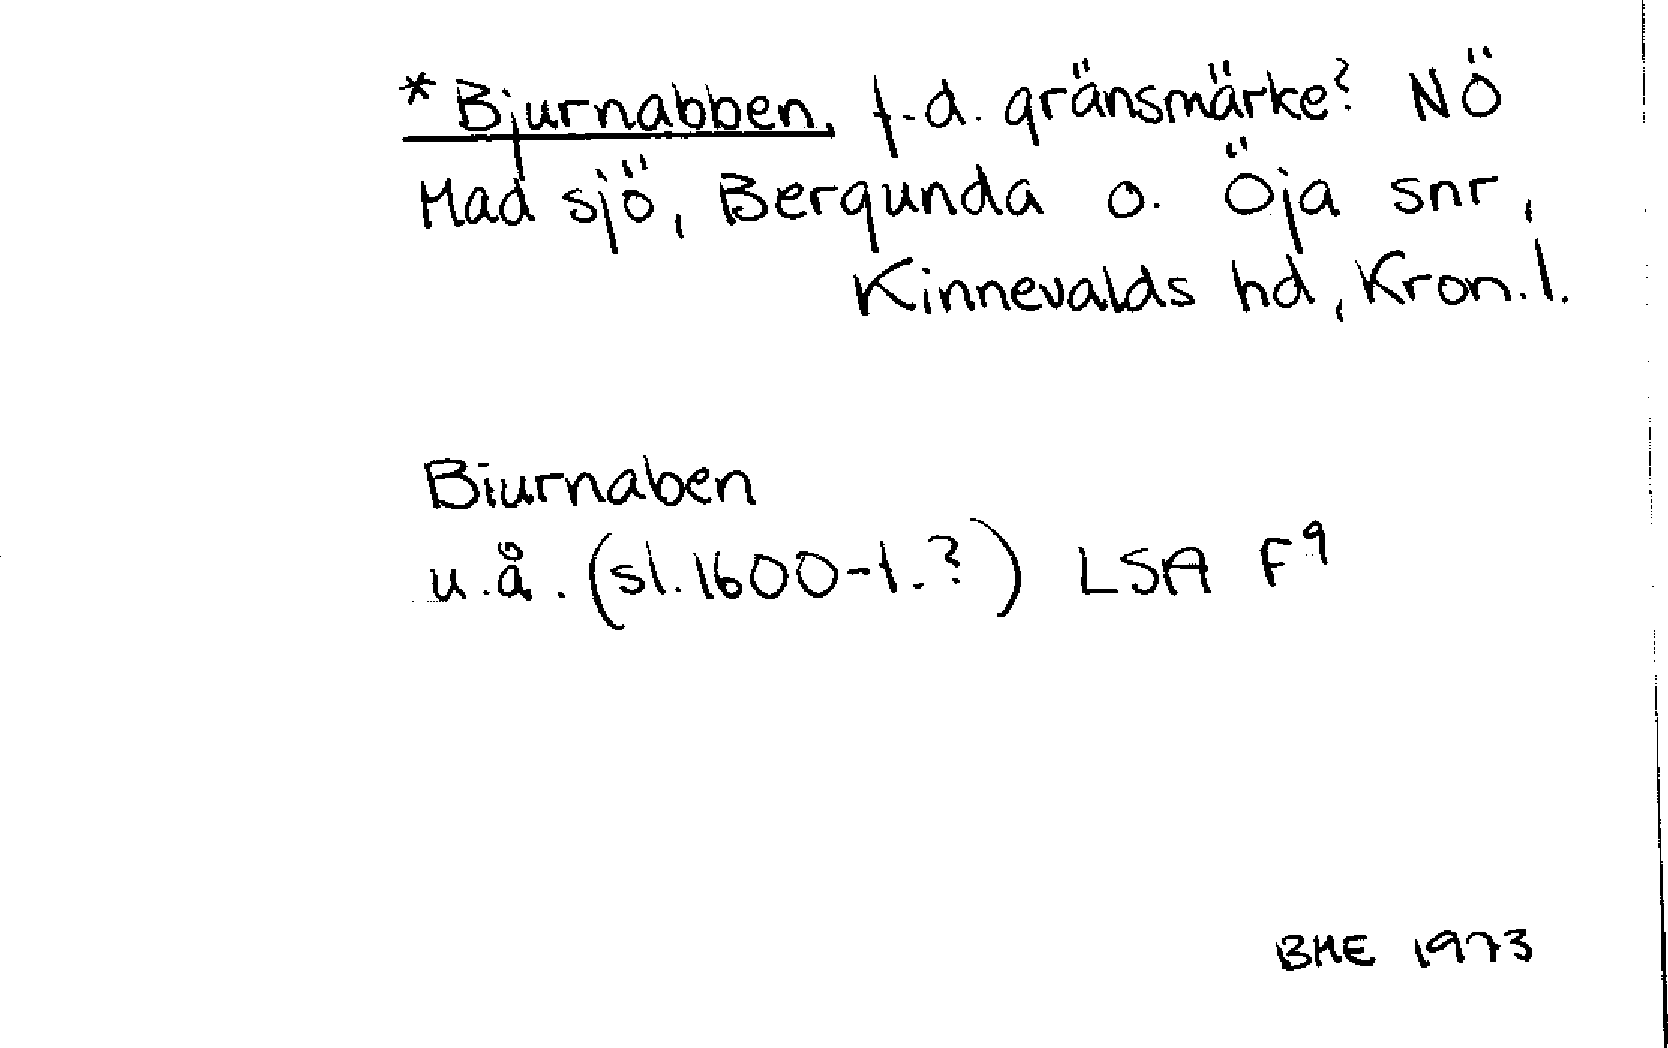 *Bjurnabben, f.d. gränsmärke? NÖ
Mad sjö, Bergunda o. Öja snr,
Kinnevalds hd, Kron.l.
Biurnaben
u.å. (sl.1600-t.?) LSA F9
BME 1973